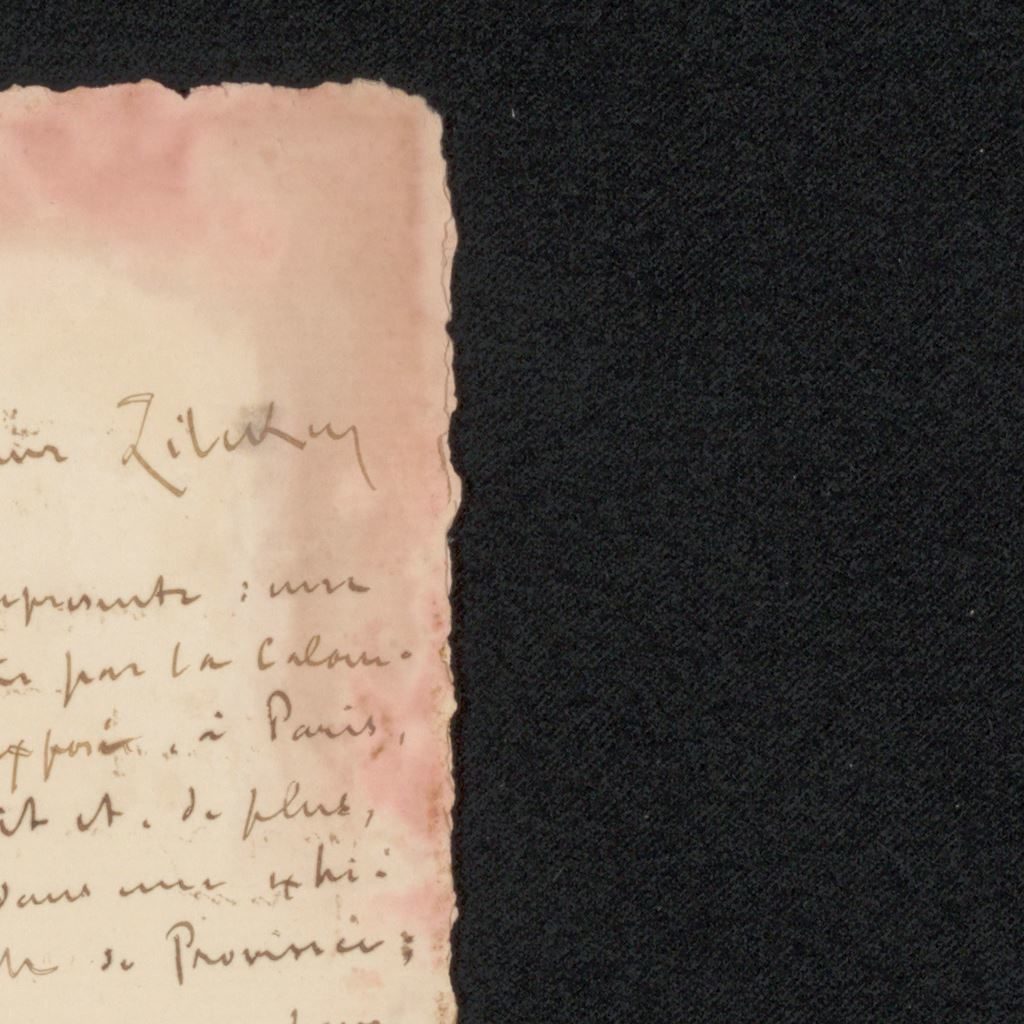 Zilcken
représente : une
par la Calom-
exposé, à Paris,
et, de plus,
dans une exhi-
de Province ;